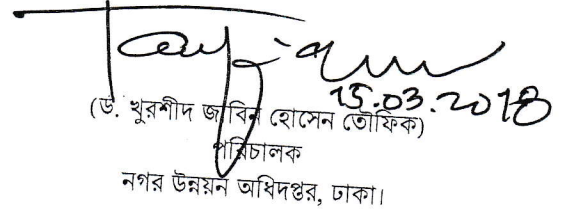 15.03.2018
(ড. খুরশীদ জাবিন হোসেন তৌফিক)
পরিচালক
নগর উন্নয়ন অধিদপ্তর, ঢাকা।